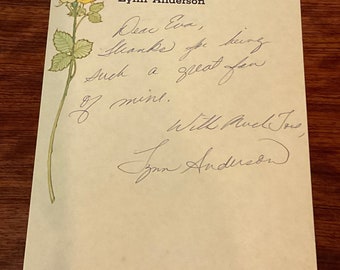 Lynn Anderson
Dear Eva,
Thanks for being
such a great fan
of mine.
With Much Love,
Lynn Anderson